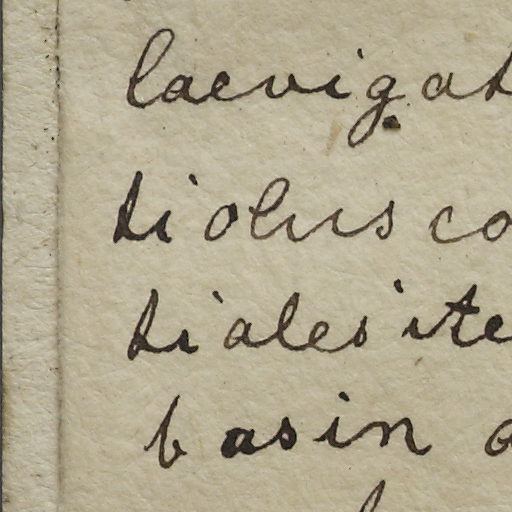 laevigat
tiolus co
tiales ite
basin